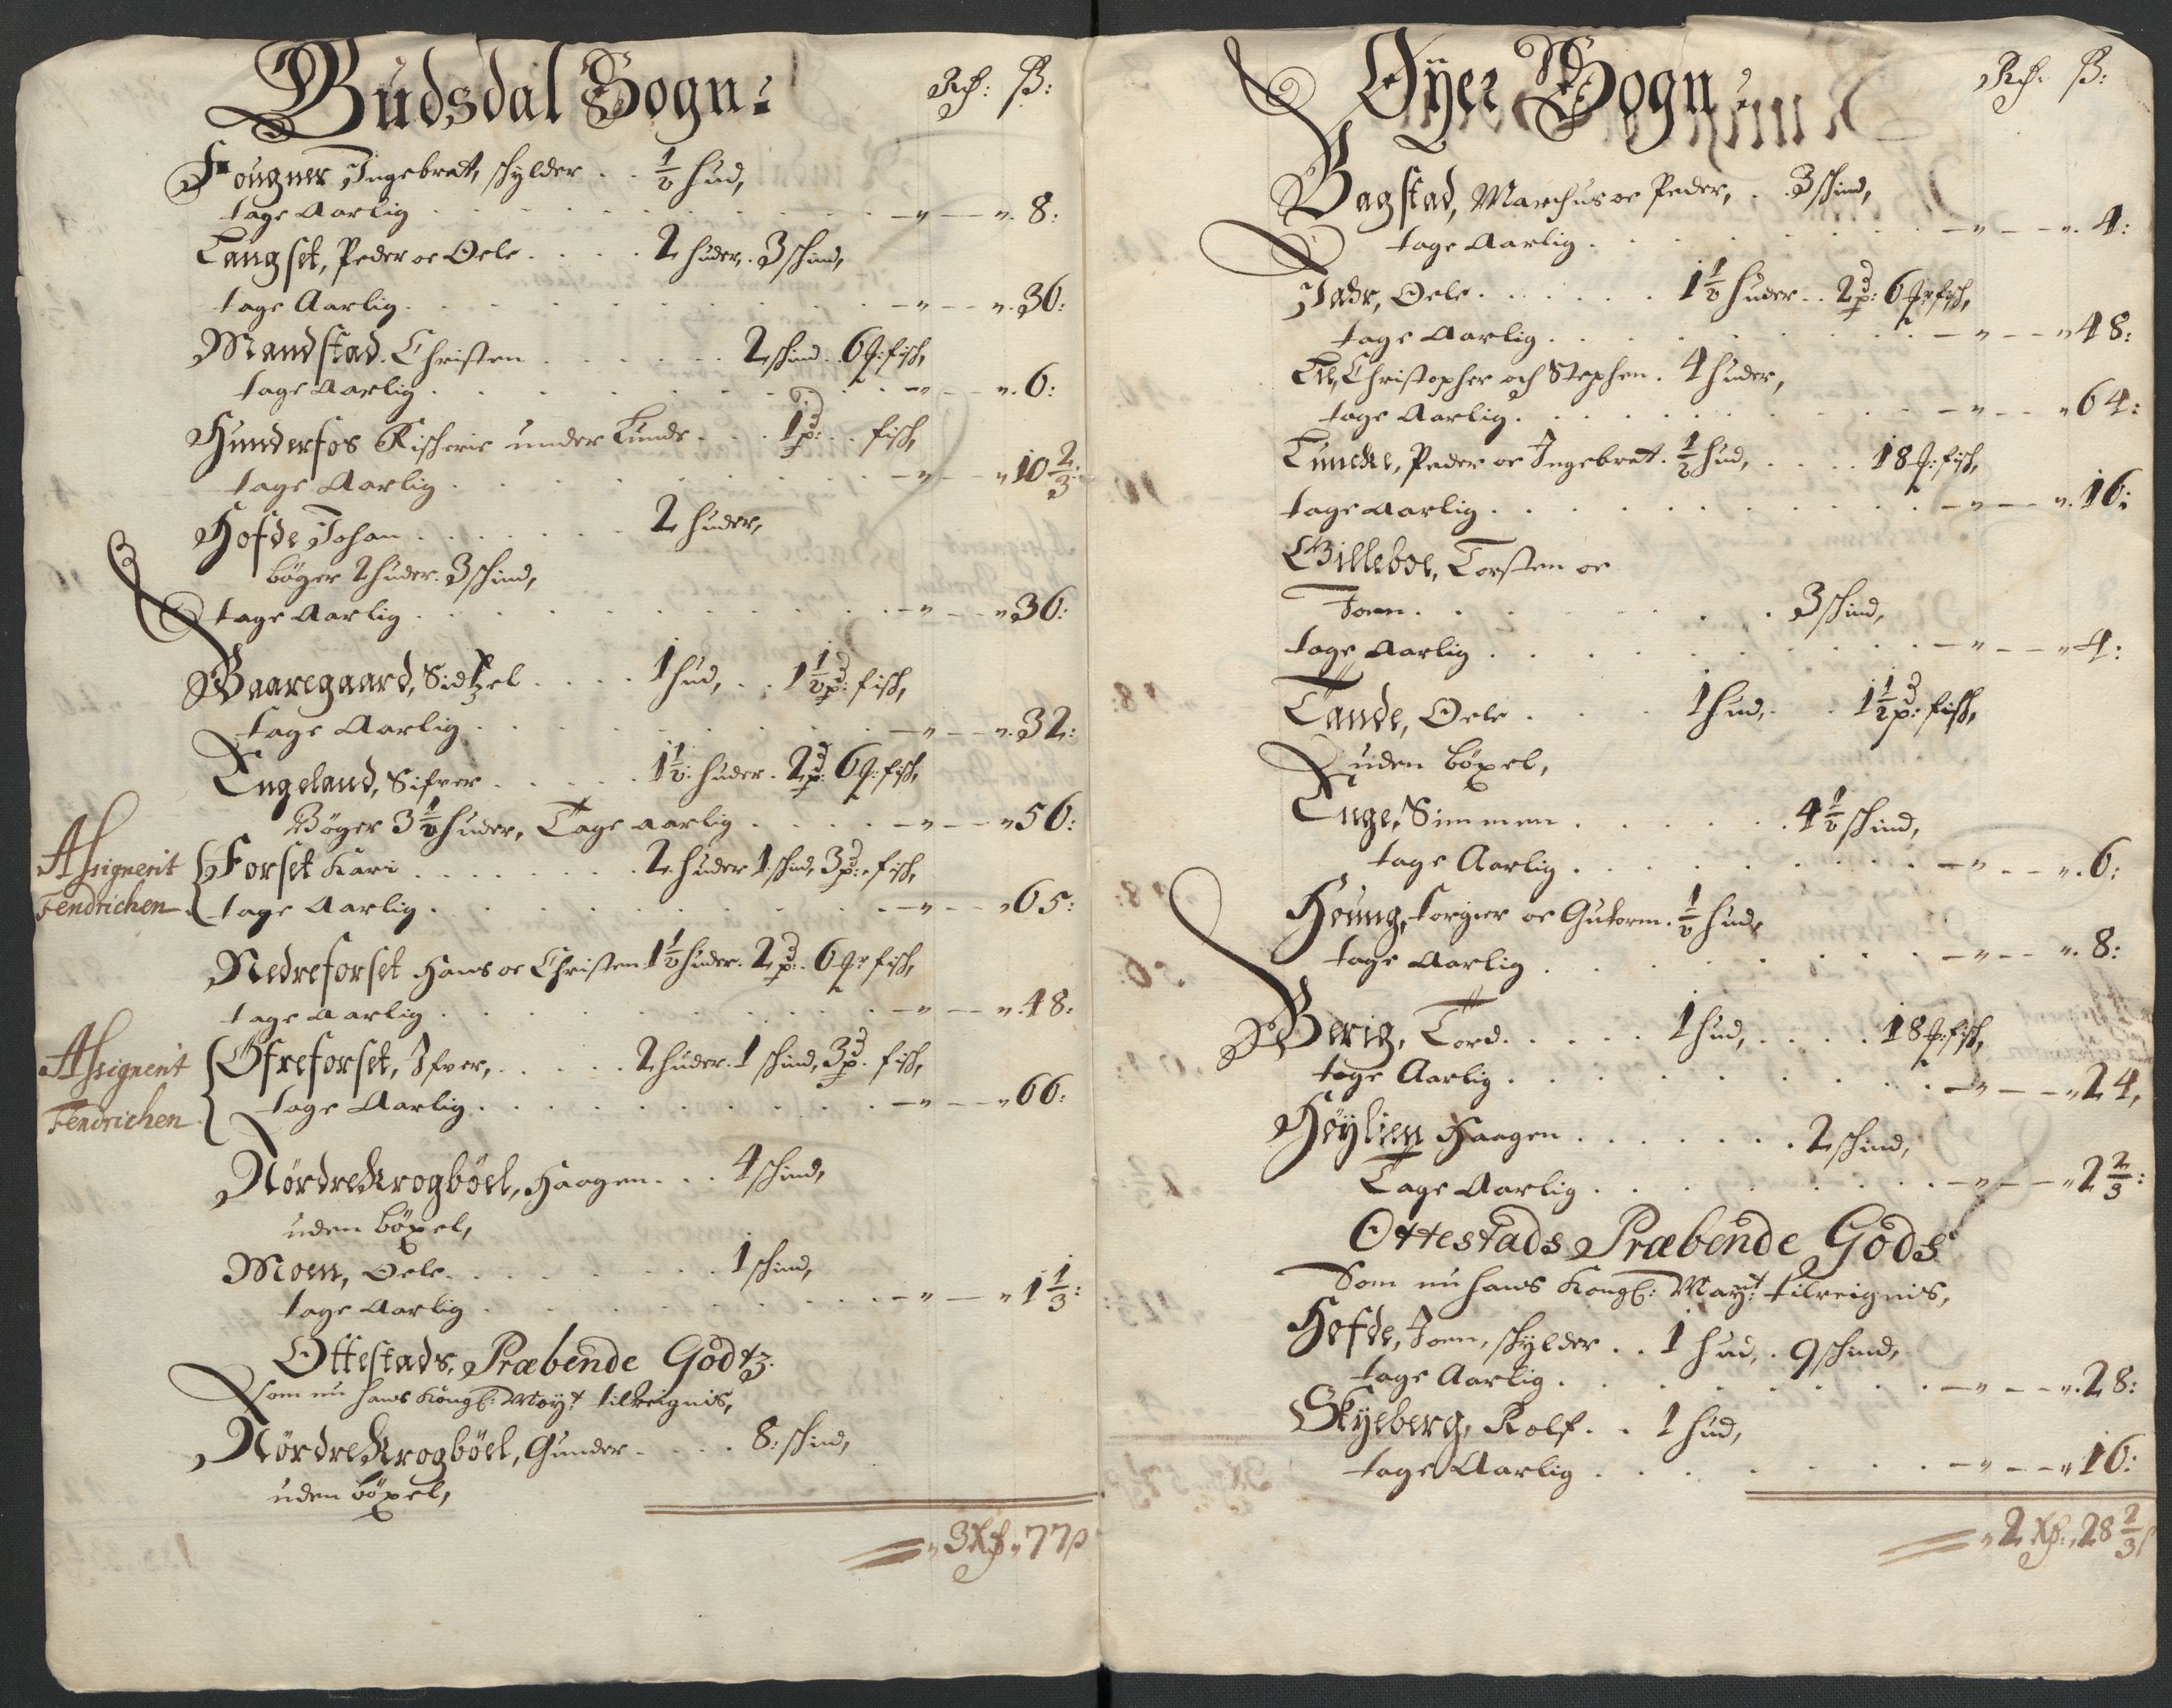 Budsdal Sogn:
Rdr: ß:
Fougner Ingebret, schylder . . ½ hud,
tage Aarlig . . . 8:
Langset, Peder oc Oele . . . . 2 huder. 3 schind,
tage Aarlig . . . 36:
Mandstad. Christen . . . . 2 schind . 6 f: fisch,
tage Aarlig . . . 6:
Hunderfos Fischerie under Lunde . . . 1 pd: . . fisch,
tage Aarlig . . . 10 ⅔:
Hofde Johan . . . . 2 huder,
böger 2 huder. 3 schind,
tage Aarlig . . . 36:
Baaregaard, Sidtzel . . . . 1 hud, . . 1½ pd: fisch,
tage Aarlig . . . 32:
Engeland, Sifver . . . . 1½ huder . 2 pd: 6 f: fisch,
Böger 3½ huder, Tage aarlig . . . 56:
Assignerit
Fendrichen
Forset Kari . . . . 2 huder 1 schind, 3 pd: fisch,
tage Aarlig . . . 65:
Nedreforset Hans oc Christen 1½ huder. 2 pd: 6 f: fisch,
tage Aarlig . . . 48:
Assignerit
Fendrichen
Öfreforset, Ifver, . . . . 2 huder. 1 schind, 3 pd. fisch,
tage Aarlig . . . 66:
Nördre Krogböel, Haagen . . . 4 schind,
uden böxel,
Moen, Oele . . . . 1 schind,
tage Aarlig . . . 1 ⅓:
Ottestads, Præbende Godtz.
som nu hans Kongl: Mayt: tilreignis,
Nördre Krogböel, Gunder . . . . 8: schind,
uden böxel,
3 Rdr 77 ß
Öyer Sogn:
Rdr. ß:
Bagstad, Marchus oc Peder, . . 3 schind,
tage Aarlig . . . 4:
Jadr, Oele . . . . 1½ huder . . 2 pd: 6 f: fisch,
tage Aarlig . . . 48:
Lie, Christopher och Stephen . 4 huder,
tage Aarlig . . . 64:
Luncke, Peder oc Ingebret . ½ hud, . . . . 18 f: fisch,
tage aarlig . . . 16:
Gilleboe, Torsten oc
Joen . . . . 3 schind,
tage Aarlig . . . 4:
Tande, Oele . . . 1 hud, . . 1½ pd: fisch,
uden böxel,
Enge, Simmen . . . . 4½ schind,
tage Aarlig . . . 6:
Houng, Torgier oc Gutorm . ½ hud,
tage Aarlig . . . 8:
Berig, Tord . . . . 1 hud, . . . . 18 f: fisch,
tage Aarlig . . . 24,
Höylien Haagen . . . . 2 schind,
Tage Aarlig . . . 2 ⅔:
Ottestads Præbende Gods
Som nu hans Kongl: Mayt: tilreignis,
Hofde, Joen, schylder . . 1 hud, . 9 schind,
tage Aarlig . . . 28:
Skyeberg, Rolf . . 1 hud,
tage Aarlig . . . 16:
2 Rdr. 28 ⅔ ß